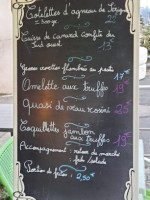 Cotelettes d'agneau de
Cuisse de canard confite du
Sud ouest 13
flambées au pastis 17€
Omelette aux truffes 19€
Quasi de veau rosini 23
Coquillettes jambon
aux truffes 19€
Accompagnement : retour de marché
Portion de frites : 2,50€